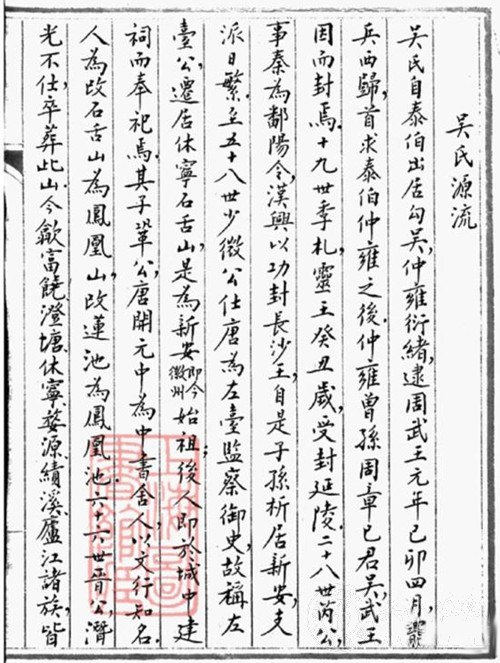 吴氏源流
吴氏自泰伯出居勾吴,仲雍衍緒,逮周武王元年己卯四月,
兵西歸,首求泰伯仲雍之後,仲雍曾孫周章已君吴,武王
因而封焉,十九世季札,靈王癸丑歲,受封延陵,二十八世芮公,
事秦為鄱陽令,漢興以功封長沙王,自是子孫析居新安,支
派日繁,至五十八世少微公仕唐為左臺監察御史,故稱左
臺公,遷居休寧石舌山,是為新安即今徽州始祖;後人即於城中建
祠而奉祀焉,其子鞏公,唐開元中為中書舍人,以文行知名,
人為改石舌山為鳳凰山,改蓮池為鳳凰池,六十六世晉公,潛
光不仕,卒葬此山,今歙富饒,澄塘,休寧,婺源,績溪,廬江諸族,皆